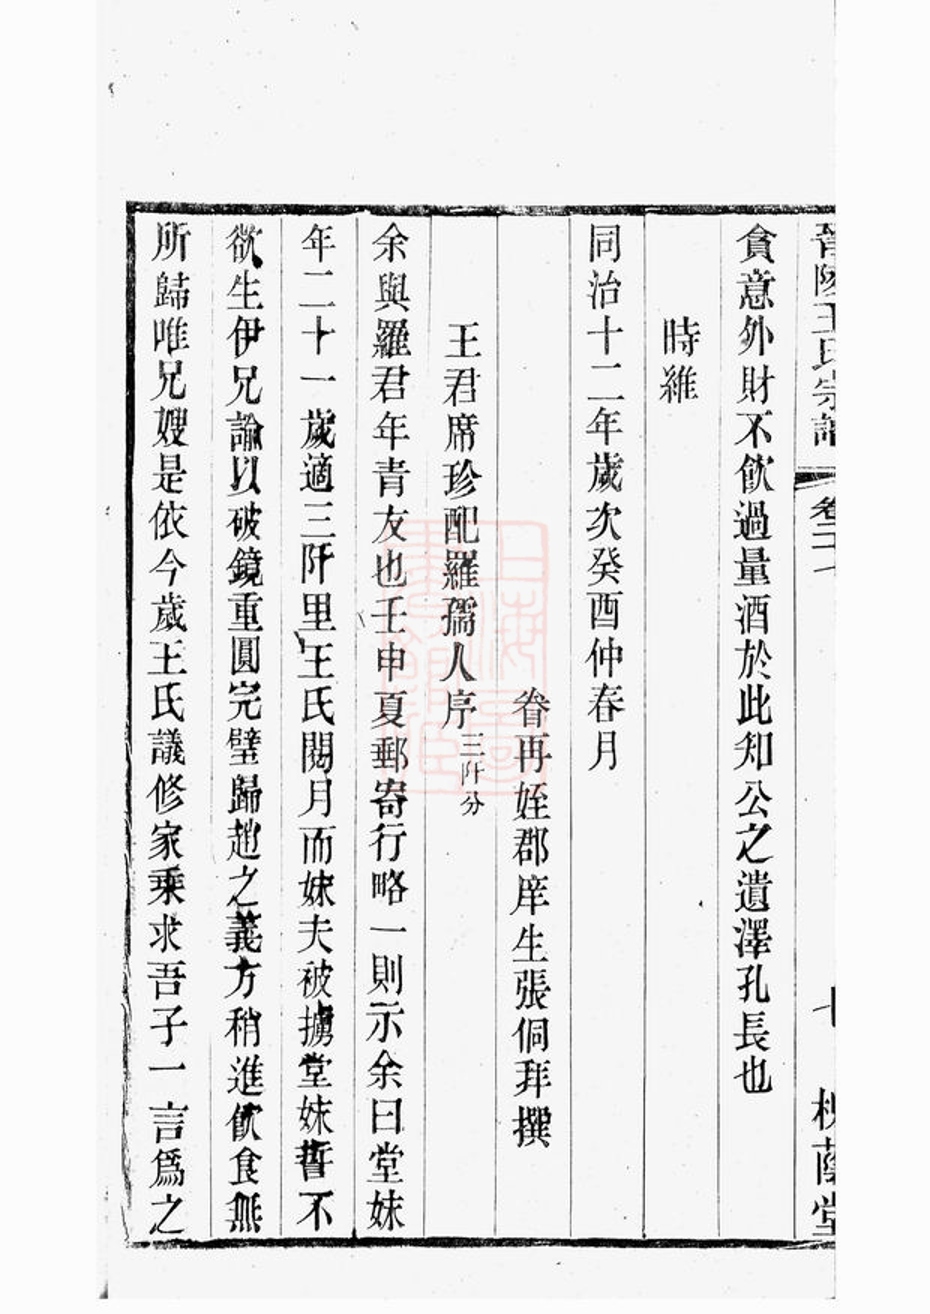 晉陵王氏宗譜 卷二十 七 槐蔭堂
貪意外財不飲過量酒於此知公之遺澤孔長也
時維
同治十二年歲次癸酉仲春月
眷再姪郡庠生張侗拜撰
王君席珍配羅孺人序三阡分
余與羅君年青友也壬申夏郵寄行略一則示余曰堂妹
年二十一歲適三阡里王氏閱月而妹夫被擄堂妹誓不
欲生伊兄諭以破鏡重圓完璧歸趙之義方稍進飲食無
所歸唯兄嫂是依今歲王氏議修家乘求吾子一言爲之